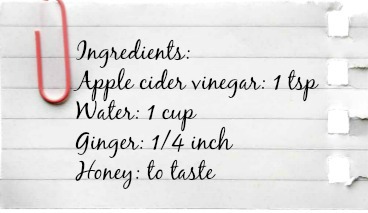 Ingredients:
Apple cider vinegar: 1 tsp
Water: 1 cup
Ginger: 1/4 inch
Honey: to taste